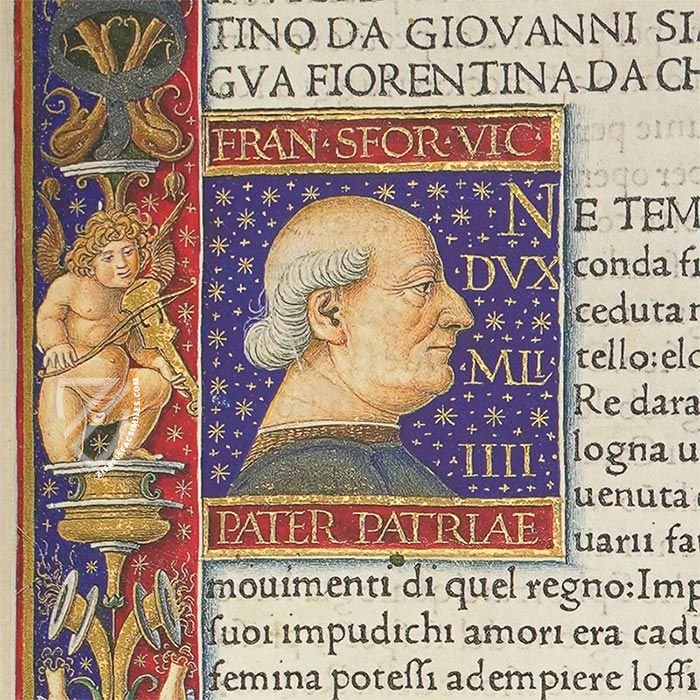 TINO DA GIOVANNI SI
GVA FIORENTINA DA CH
FRAN · SFOR · VIC ·
N
DVX
MLI
IIII
PATER PATRIAE
E TEM
conda fi
ceduta
tello:elc
Re dara
logna u
uenuta
uarii fau
mouimenti di quel regno:Imp
suoi impudichi amori era cadu
femina potessi adempiere loffi